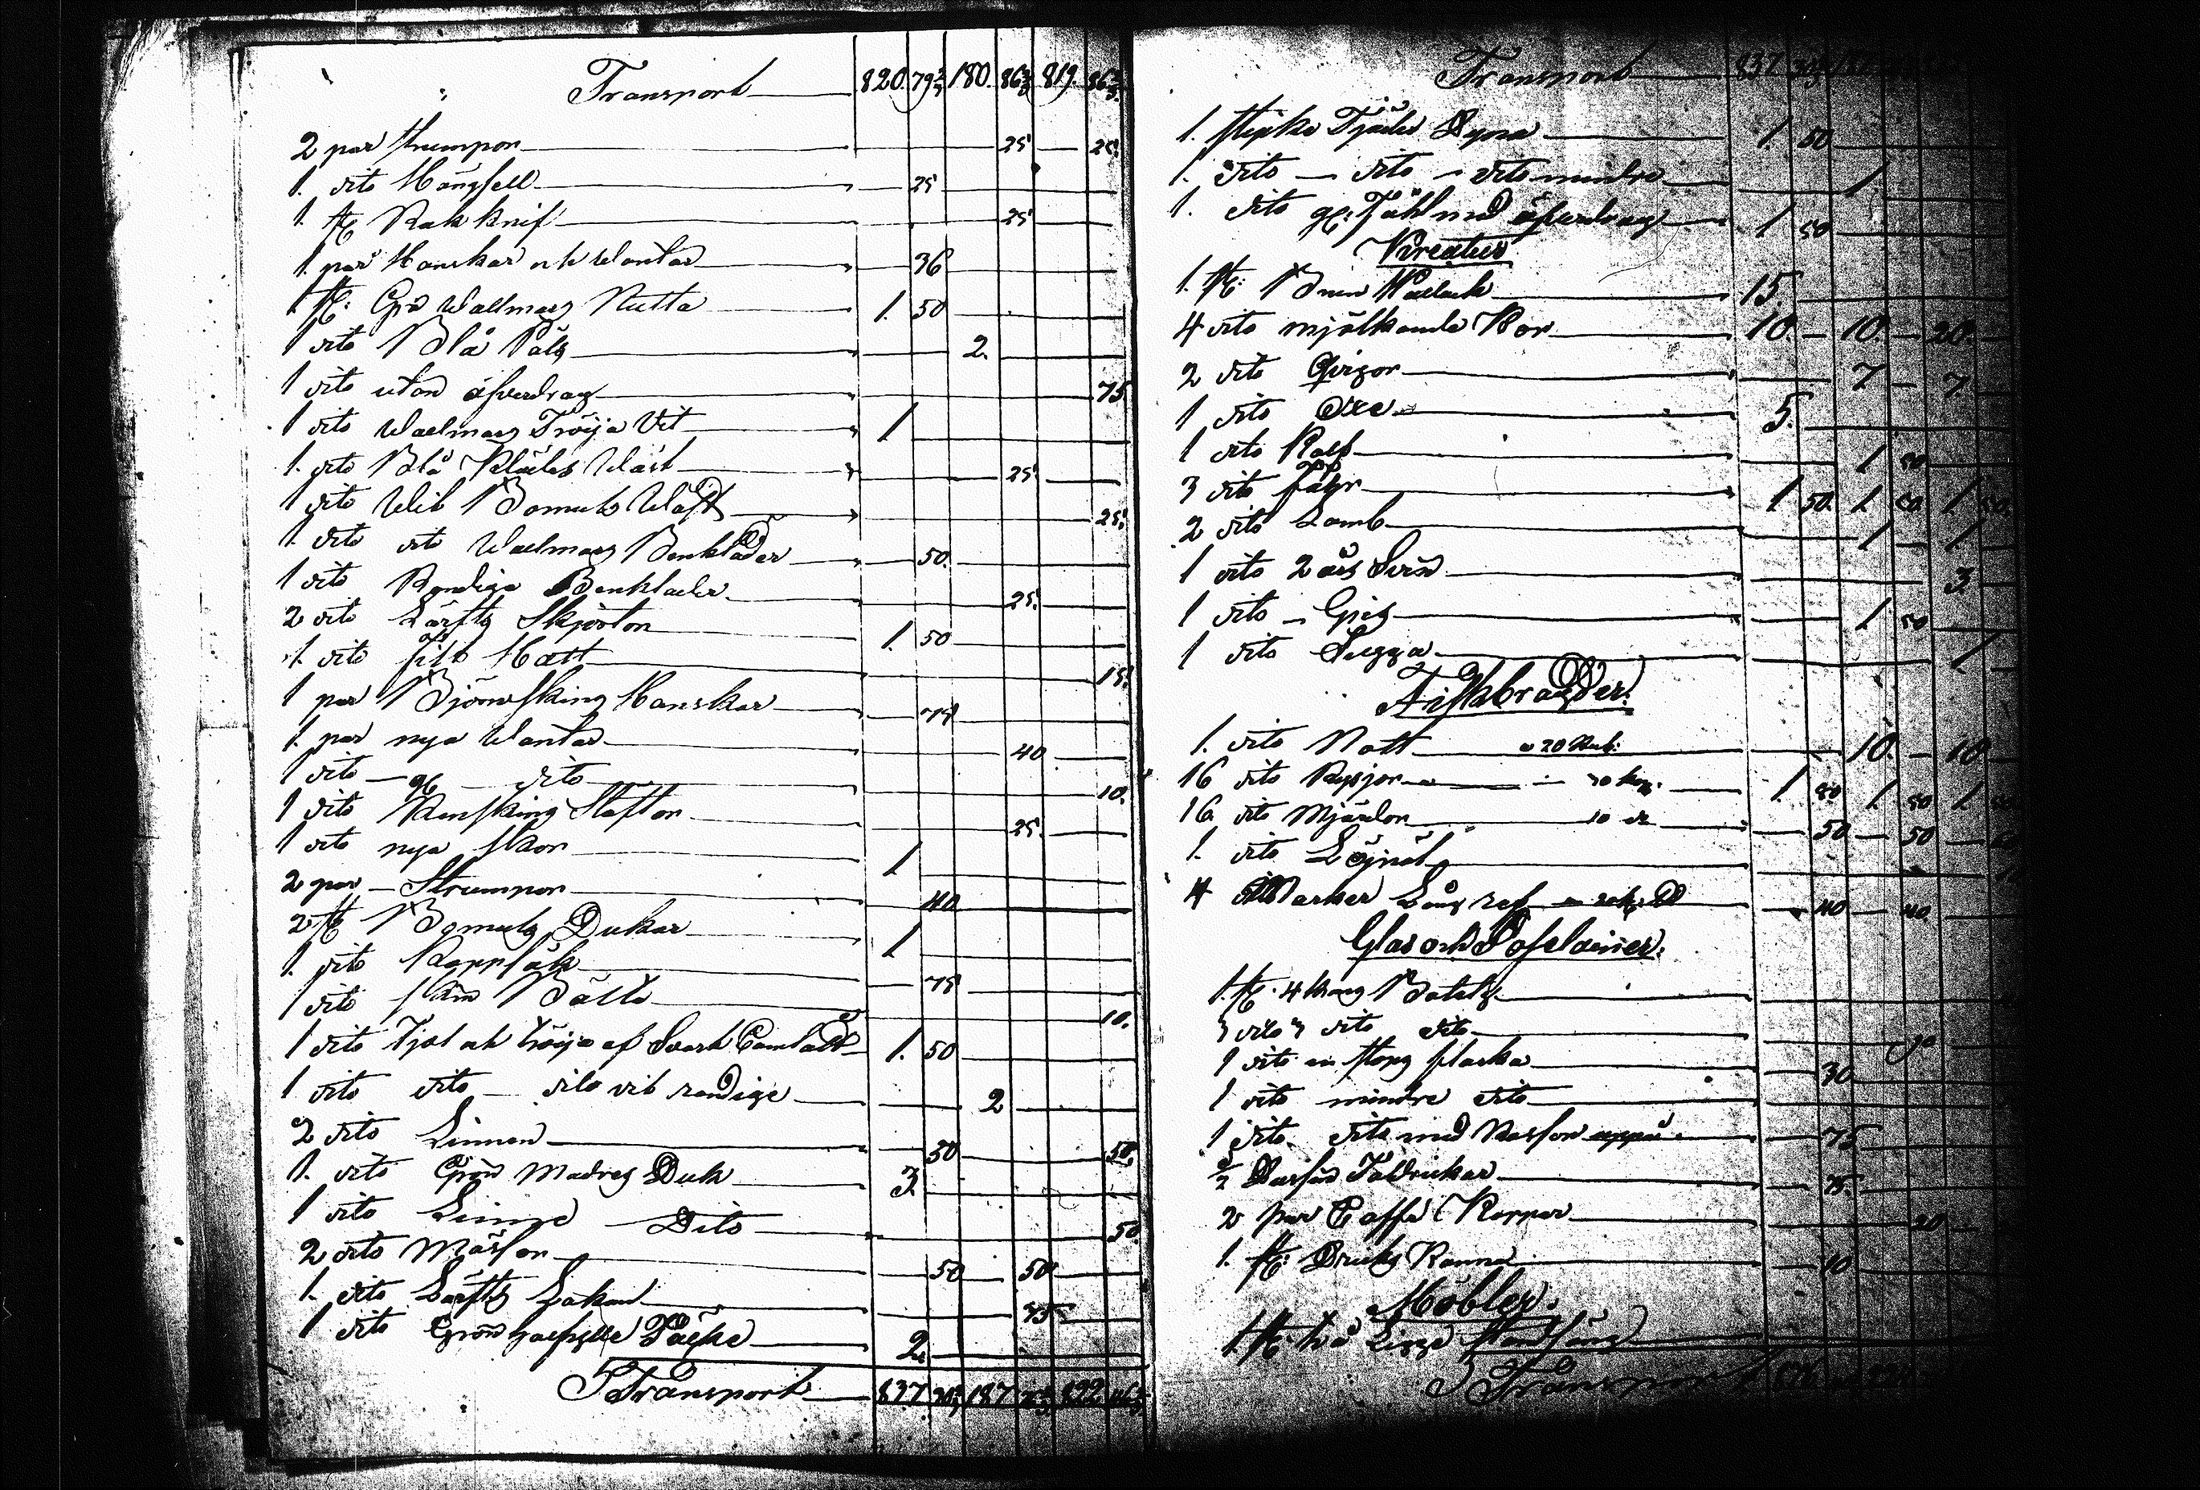 Transport 820. 79 180. 86 819. 86
2 par strumpor 25 25
1. dito Hängsell 25
1. st Rak knif 25
1. par Hanskar och Wantar 36
1 st: Grå Wallmars Kutta 1. 50
1 dito Blå Päls 2.
1 dito utan öfverdrag 75
1 dito Wallmars Tröija Vit 1
1. dito Blå Klädes Wäst 25
1 dito Wit Bomuls Wäst 25
1. dito dito Wallmars Benkläder 50.
1 dito Randiga Benkläder 25.
2 dito Lärfts Skjortor 1. 50
1. dito filt Hatt 15.
1 par Björnskins Hanskar 75
1. par nya Wantar 40
1 dito gl dito 10.
1 dito Renskins Stöflor 25.
1 dito nya skor 1
2 par Strumpor 40
2 st Bomuls Dukar 1
1. dito Kapsäk 75
1 dito skin Bälte 10.
1 dito Kjol och tröija af Svart Camlått 1. 50
1 dito dito dito vit randige 2
2 dito Linnen 50 50.
1. dito Grön Madras Duk 3
1 dito Linne Dito 50.
2 dito Mössor 50 50
1. dito Lärfts Lakan 75
1 dito Grön Täcke 2.
Transport 837 187 822
Transport 837
1. stycke Fjäder Dyna 1. 50
1. Dito dito dito mindre 1
1. dito gl: Fäll med öfverdrag 1 50
Kreatur
1. st: Brun Wallack 15.
4 dito mjölkande Kor 10. 10. 20.
2 dito Qvigor 7 7.
1 dito Oxe 5.
1 dito Kalf 1 50
3 dito fåhr 1 50. 1 50 1 50.
2 dito Lamb 1 1
1 dito 2 års Svin 3
1 dito Gris 1 50
1 dito Sugga 1
Fiskbragder.
1. dito Nott a 20 Rub: 10. 10
16 dito Ryssjor 30 kop. 1. 80. 1 80 1 80
16 dito Mjärdor 10 d 50 50
1. dito Löjnät
4 Marker Lång ref 40 40
Glas och Poselainer.
1. st. 4 krang Botelj
3 dito 3 dito dito
1 dito en storg flaska 30
1 dito mindre dito
1 dito dito med Korfor uppå 75
1/2 Dussin Taldrickar 75.
2 par Caffe Koppar 20
1. st: Dricks Kanna 10
Möbler.
1. st. två
Transport